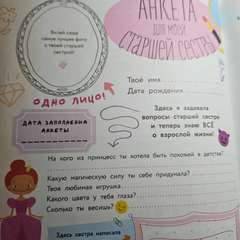 АНКЕТА
ДЛЯ МОЕЙ
СТАРШЕЙ СЕСТРЫ
Вклей сюда
самую лучшую фото
с твоей старшей
сестрой!
Твоё имя
Дата рождения
ОДНО ЛИЦО!
Здесь я задавала
вопросы старшей сестре
и теперь знаю ВСЁ
о взрослой жизни!
ДАТА ЗАПОЛНЕНИЯ
АНКЕТЫ
На кого из принцесс ты хотела быть похожей в детстве?
Какую магическую силу ты себе придумала?
Твоя любимая игрушка
Какого цвета у тебя глаза?
Сколько ты весишь?
Здесь сестра написала